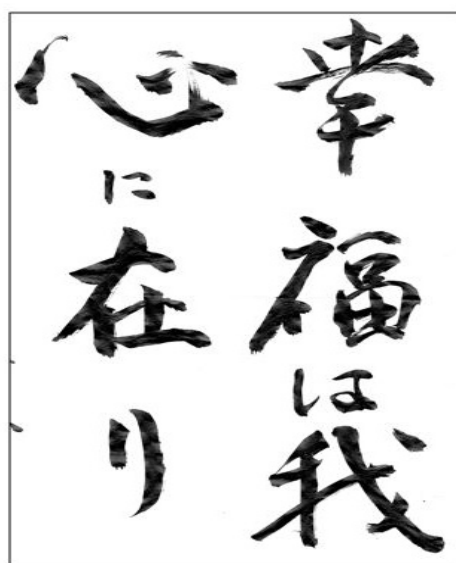 幸福は我
心に在り